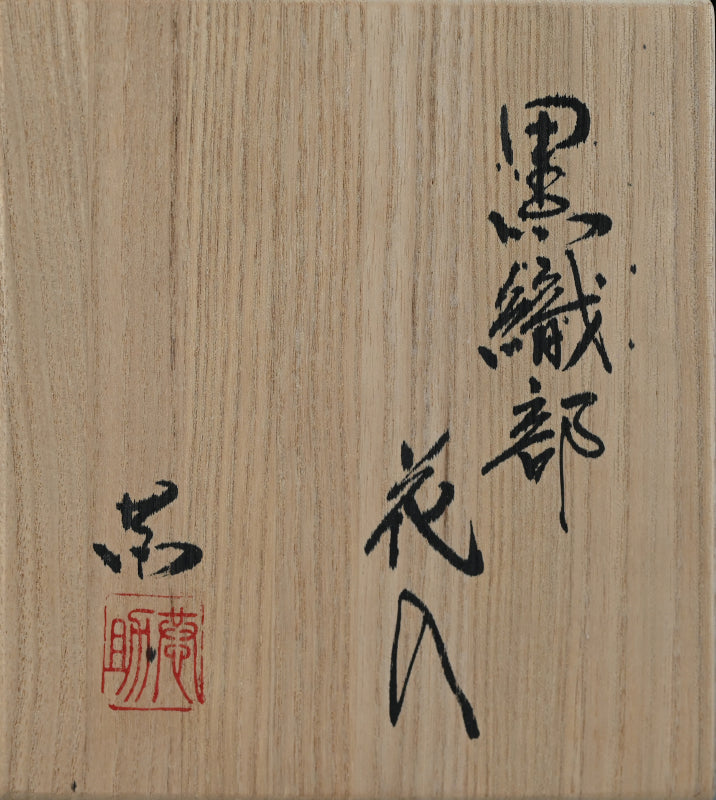 黒織部
花入